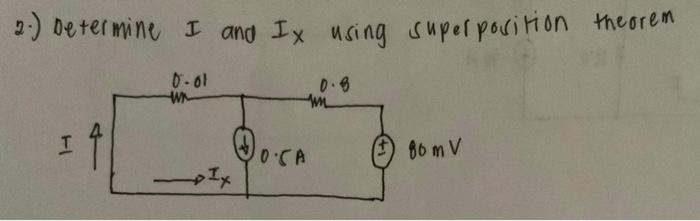 2.) Determine I and Ix using superposition theorem
0.01
0.8
I
0.5A
80mV
Ix